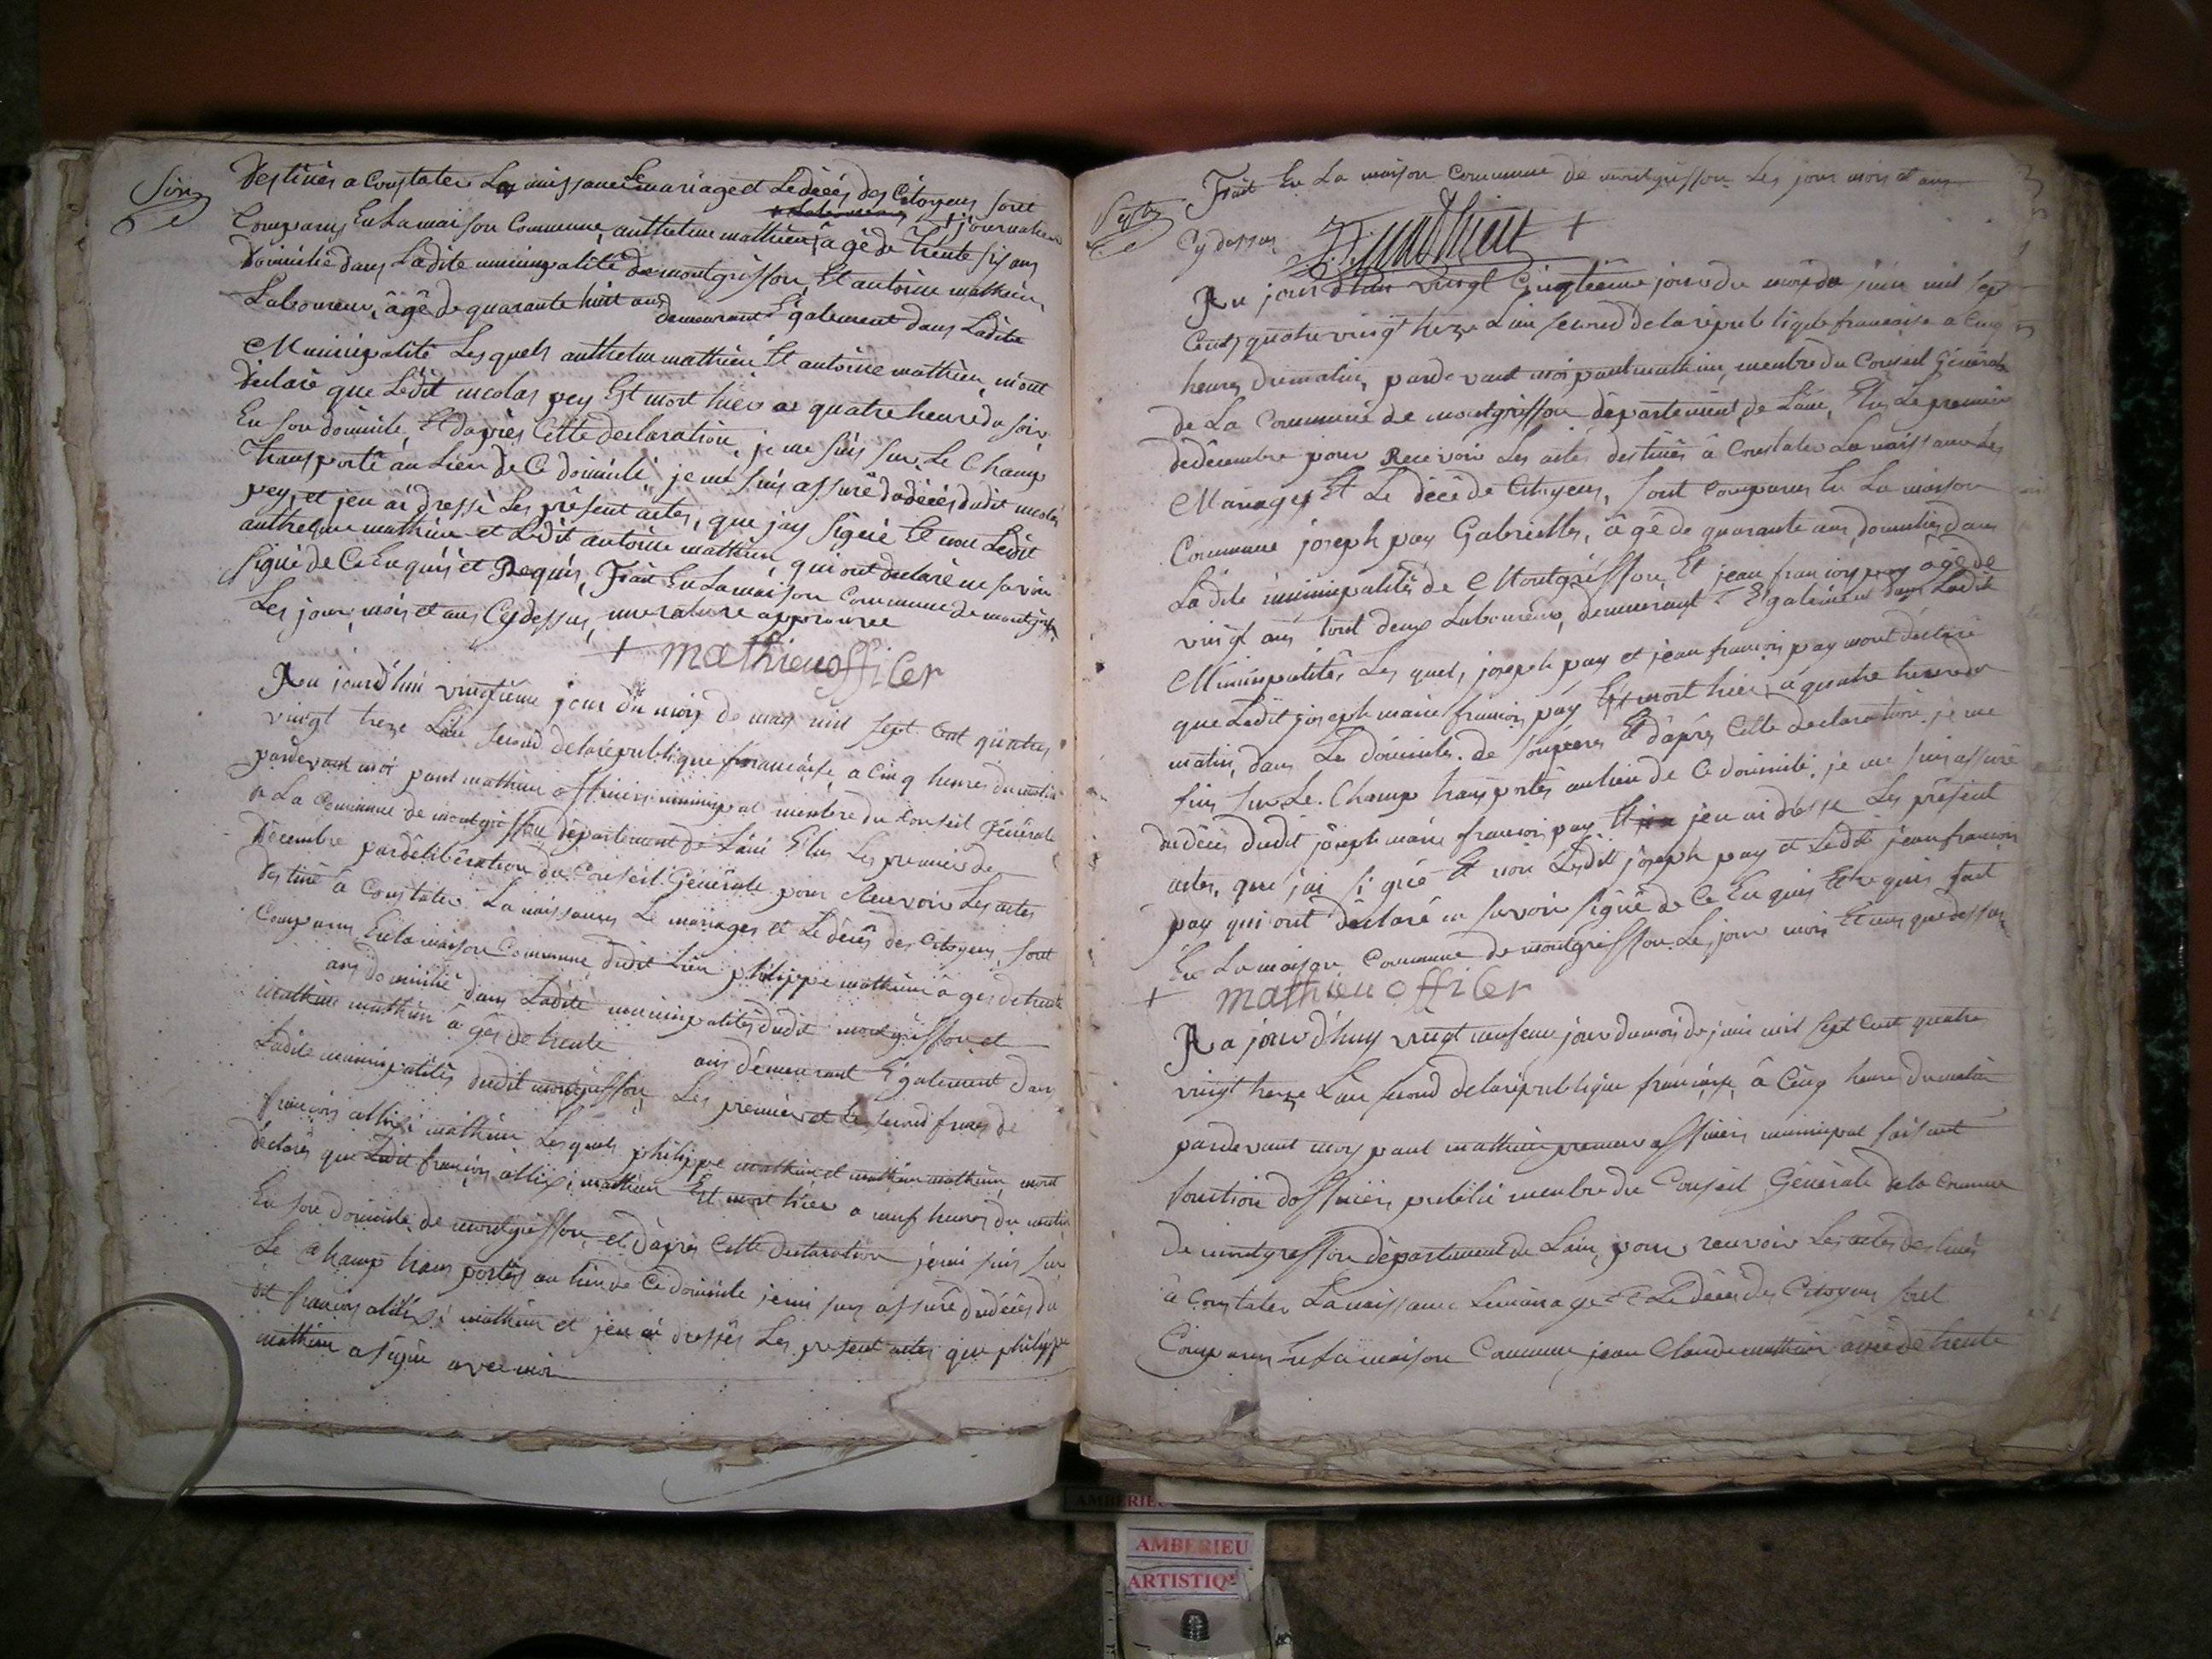 Six
destinés a Constater La naissance Le mariage et Le décès des Citoyens sont
+ journalier
Comparus En La maison Commune, anthelme mathieu, âgé de trente six ans
domicilié dans Ladite municipalité de montgriffon, Et antoine mathieu,
Laboureur, âgé de quarante huit ans demeurant Egalement dans Ladite
Municipalité Lesquels anthelme mathieu Et antoine mathieu, m'ont
déclaré que Ledit nicolas pey Est mort hier a quatre heure du soir
En son domicile, Et daprès Cette declaration, je me suis sur Le Champ
transporté au Lieu de Ce domicile, je me suis assuré du décès dudit nicolas
pey, et jen ai dressé Les présent actes, que jay signé Et non Ledit
anthelme mathieu et Ledit antoine mathieu, qui ont declaré ne savoir
signé de Ce Enquis et Requis, Fait En La maison Commune de montgriffon
Les jour, mois et ans Cydessus, une rature approuvée
+ mathieu officer
Au jourd'hui vingtième jour du mois de may mil sept Cent quatre
vingt treze L'an second de la république francaise, a Cinq heures du matin
pardevant moi paul mathieu officiers municipal membre du Conseil Générale
de La Commune de montgriffon département de L'ain Elus Les premier de
Décembre par délibération du Conseil Générale pour Recevoir Les actes
destiné à Constater La naissances Le mariages et Le décès des Citoyens, sont
Comparus En la maison Commune dudit Lieu philippe mathieu âges de trente
ans domicilié dans Ladite municipalités dudit montgriffon et
mathieu mathieu âgés de trente ans demeurant Egalement dans
Ladite municipalités dudit montgriffon, Les premier et Le second frères de
françois mathieu Lesquels philippe mathieu et mathieu mathieu, mont
déclarés que Ledit françois mathieu Est mort hier a neuf heures du matin
En son domicile de montgriffon, et d'après Cette declaration je mi suis sur
Le Champ transportés au Lieu de Ce domicile je mi suis assuré du décès du
dit françois mathieu et jen ai dressés Les présent actes que philippe
mathieu a signé avec moi
Sept
Fait En La maison Commune de montgriffon Les jour mois et ans
Cy dessus mathieu +
Au jourdhui vingt Cinqtième jour du mois de juin mil sept
Cents quatre vingt treze L'an second de la république francaise a Cinq
heures du matin, pardevant moi paul mathieu, membre du Conseil Générale
de La Commune de montgriffon département de L'ain, Elus Le premier
de décembre pour Recevoir Les actes destinés â Constater La naissance Les
Mariages Et Le décè de Citoyens, sont Comparus En La maison
Commune joseph pay Gabrielles, âgé de quarante ans, domiciliés dans
Ladite municipalités de Montgriffon, Et jean françois pay âgé de
vingt ans tout deux Laboureur, demeurant Egalement dans Ladite
Municipalités Les quels, joseph pay et jean françois pay mont déclaré
que Ledit joseph marie françois pay Est mort hier, a quatre heure du
matin, dans Le domicile de Et d'après Cette declaration je me
suis sur Le Champ transportés au lieu de Ce domicile, je me suis assuré
du décès dudit joseph marie françois pay Et jen ai dressé Les présent
actes, que j'ai signé Et non Ledit joseph pay et Ledit jean françois
pay qui ont déclaré ne savoir signé de Ce Enquis Et requis fait
En La maison Commune de montgriffon Les jour mois Et ans que dessus
+ mathieu officer
Au jourd'huy vingt neufeme jour du mois de juin mil sept Cent quatre
vingt treze L'an second de la république française, â Cinq heures du matin
pardevant moy paul mathieu premier officiers municipal faisant
fonction dofficiers publié membre du Conseil Générale de la Commune
de montgriffon département de L'ain, pour recevoir Les actes destinés
â Constater La naissance Le mariage Et Le décès des Citoyens sont
Comparus En La maison Commune jean Claude mathieu âgé de trente
AMBERIEU
AMBERIEU
ARTISTIQ